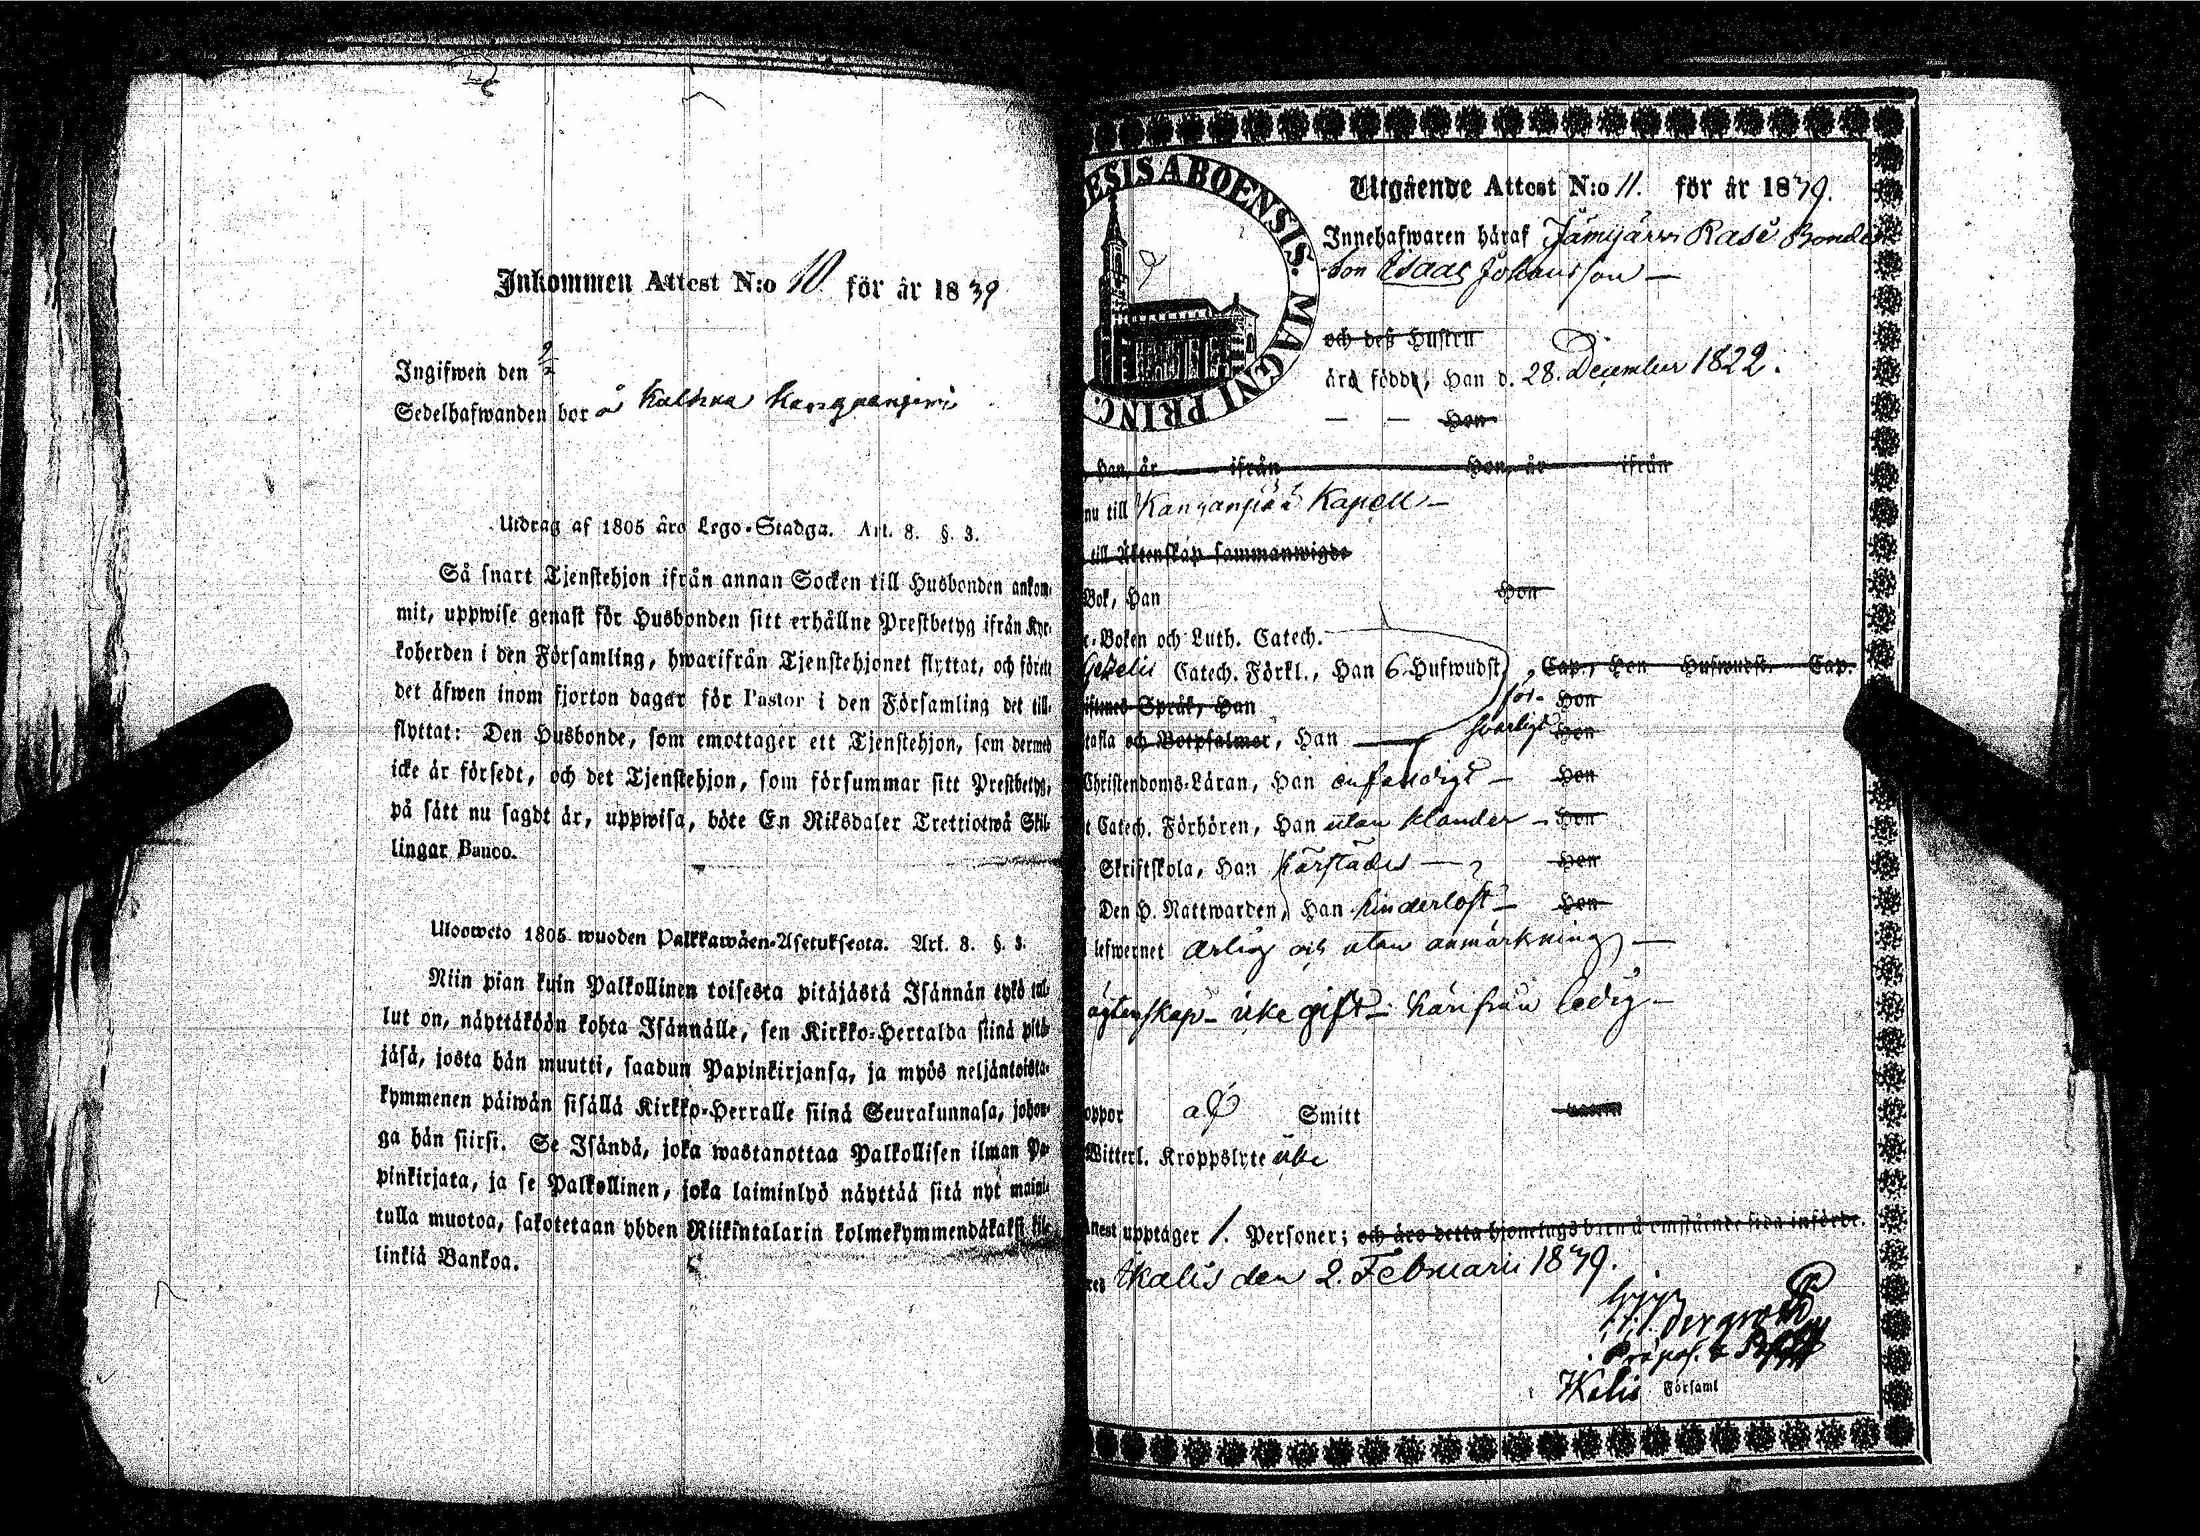 Inkommen Attest N:o 10 för år 1839
Ingifwen den 9/2
Sedelhafwanden bor å
Utdrag af 1805 års Lego-Stadga. Art. 8. §. 3.
Så snart Tjenstehjon ifrån annan Socken till Husbonden ankom-
mit, uppwise genast för Husbonden sitt erhållne Prestbetyg ifrån Kyr-
koherden i den Församling, hwarifrån Tjenstehjonet flyttat, och förete
det äfwen inom fjorton dagar för Pastor i den Församling det till-
flyttat: Den Husbonde, som emottager ett Tjenstehjon, som dermed
icke är försedt, och det Tjenstehjon, som försummar sitt Prestbetyg,
på sätt nu sagdt är, uppwisa, böte En Riksdaler Trettiotwå Skil-
lingar Banco.
Ulosweto 1805 wuoden Palkkawäen-Asetuksesta. Art. 8. §. 3.
Niin pian kuin Palkollinen toisesta pitäjästä Isännän tykö tul-
lut on, näyttäköön kohta Isännälle, sen Kirkko-Herralda siinä pitä-
jäsä, josta hän muutti, saadun Papinkirjansa, ja myös neljäntoista-
kymmenen päiwän sisällä Kirkko-Herralle siinä Seurakunnasa, johon-
ga hän siirsi. Se Isändä, joka wastanottaa Palkollisen ilman Pa-
pinkirjata, ja se Palkollinen, joka laiminlyö näyttää sitä nyt maini-
tulla muotoa, sakotetaan yhden Riikintalarin kolmekymmendäkaksi kil-
linkiä Bankoa.
ESIS ABOENSIS. MAGNI PRINC.
Utgående Attest N:o 11. för år 1839.
Innehafwaren häraf Jämijärvi Rase Bonde
son Isaac Johansson —
och desz Hustru
ära födde, Han d. 28. December 1822.
— — Hon
Han, år ifrån Hon, år ifrån
nu till Kankanpää Kapell —
till Äktenskap sammanwigde
Bok, Han Hon
c-Boken och Luth. Catech.
Catech. Förkl., Han 6 Hufwudst. Cap., Hon Hufwudst. Cap.
för- Hon
Språk, Han
svarligt Hon
tafla och Botpsalmer, Han
Christendoms-Läran, Han enfaldigt — Hon
t Catech. Förhören, Han utan klander — Hon
Skriftskola, Han härstädes — Hon
Den H. Nattwarden, Han hinderlöst — Hon
lefwernet ärlig och utan anmärkning —
ägtenskap — icke gift — härifrån ledig —
oppor af Smitt
Witterl. Kroppslyte
Attest upptager 1. Personer; och äro detta hjonelags barn å omstående sida införde.
Ikalis den 2. Februarii 1839.
Ikalis Församl